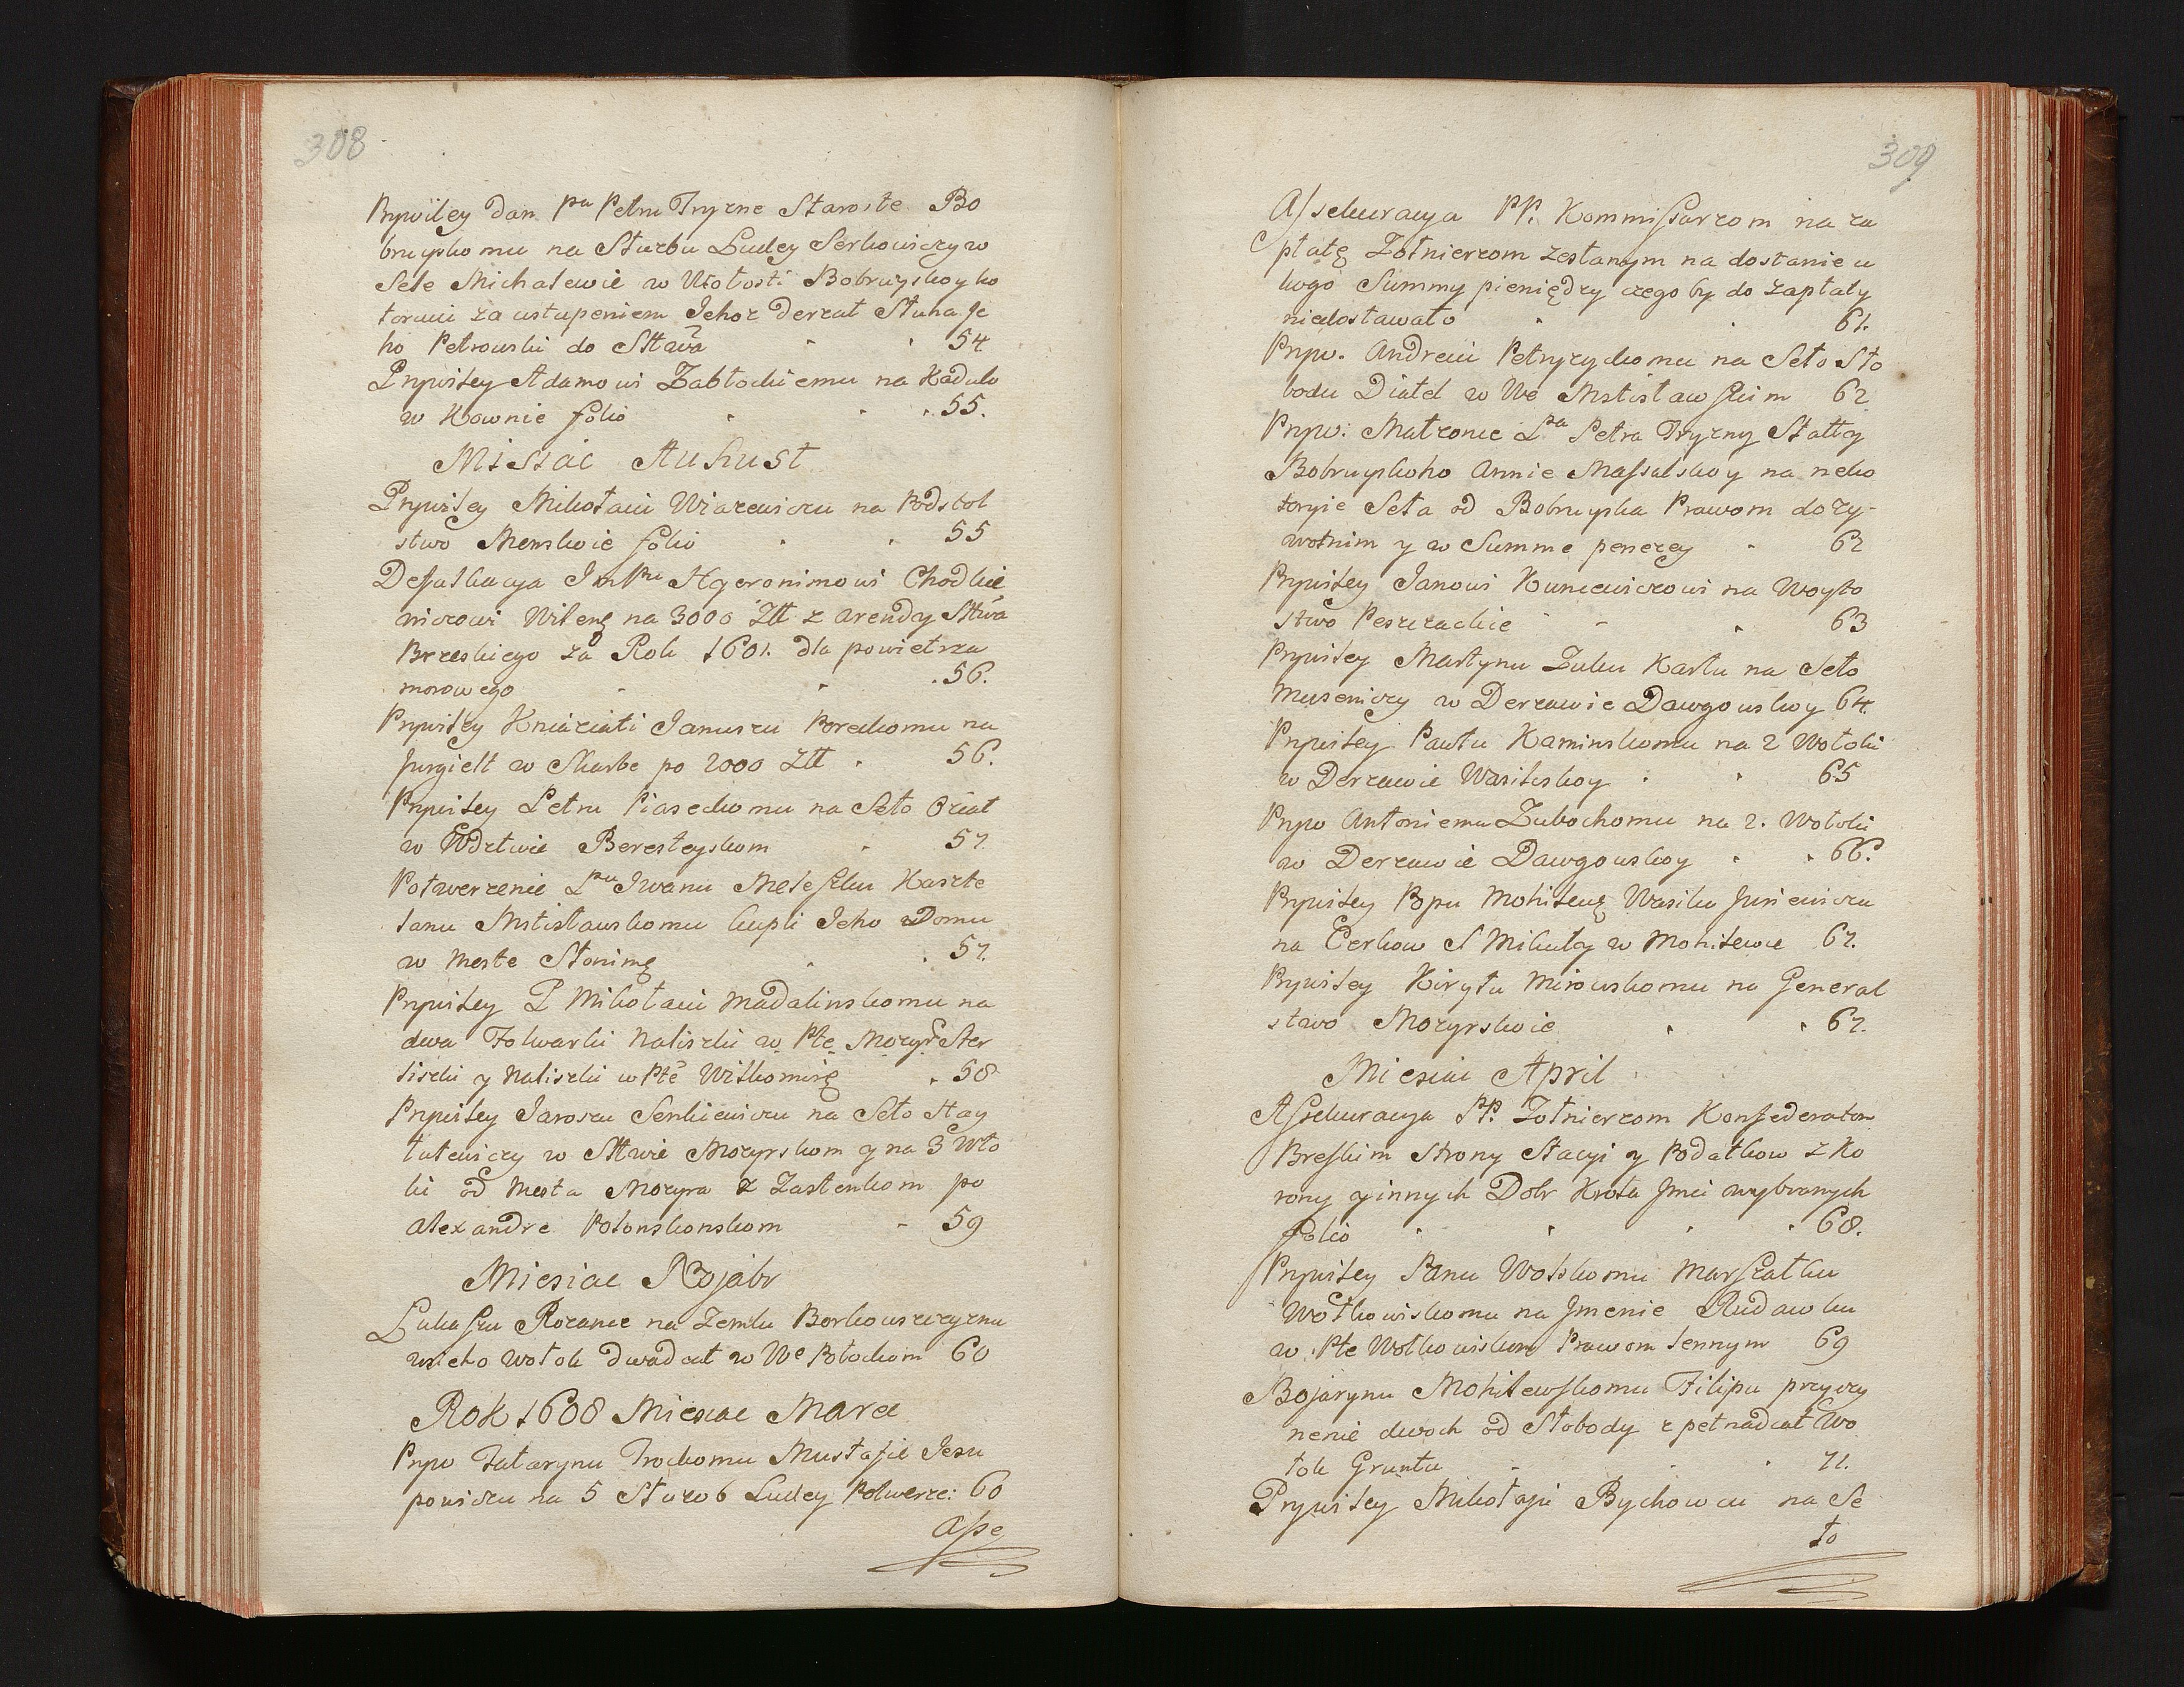 308
Prywiley dan Pu Petru Tryzne Staroste Bo
bruyskomu na Służbu Ludey Serkowiczy w
Sele Michalewie w Włosti Bobruyskoy ko
toruiu za ustupeniem Jehoż derżał Słuha Je
ho Petrowski do Sttwa 54
Prywiley Adamowi Zabłockiemu na Kaduk
w Kownie folio 55.
Misiac Auhust
Prywiley Mikołaiu Wiazewiczu na Podstol
stwo Menskoie folio 55
Defalkacya Jm Pu Hyeronimowi Chodkie
wiczowi Wileng na 3000 Złł z arendy Sttwa
Brzeskiego za Rok 1601. dla powietrza
morowego 56.
Prywiley Kniaziati Januszu Poreckomu na
Jurgielt w Skarbe po 2000 Złł 56.
Prywiley Petru Piaseckomu na Seło Oziat
w Wdztwie Beresteyskom 57.
Potwerzenie Pu Iwanu Meleszku Kaszte
lanu Mstisławskomu kupli Jeho Domu
w Meste Słonimę 57.
Prywiley P Mikołaiu Madalinskomu na
dwa Folwarki Naliszki w Pte Mozyr Ster
liszki y Naliszki w Pte Wiłkomirę 58
Prywiley Jaroszu Senkiewiczu na Seło Hay
lutewiczy w Sttwie Mozyrskom y na 3 Wło
ki od Mesta Mozyra z Zastenkom po
Alexandre Połonskonskom 59
Miesiac Nojabr
Lukaszu Rozance na Zemlu Borkowszczyznu
wseho wołok dwadcat w We Połockom 60
Rok 1608 Miesiac Marca
Pryw Tatarynu Trockomu Mustafie Jesu
powiczu na 5 Służob Ludey Potwerz: 60
Asse
309
Assekuracya PP. Kommissarzom na za
płatę Żołnierzom zesłanym na dostanie u
kogo Summy pieniędzy czego by do zapłaty
niedostawało 61.
Pryw. Andreiu Petryzyckomu na Seło Sło
bodu Diatel w We Mstisławskim 62
Pryw: Małżonce Pa Petra Tryzny Statty
Bobruyskoho Annie Massalskoy na neko
toryie Seła od Bobruyska Prawom doży-
wotnim y w Summe penezey 62
Prywiley Janowi Kuncewiczowi na Woyto
stwo Peszczackie 63
Prywiley Martynu Zuku Karłu na Seło
Museniczy w Derżawie Dawgowskoy 64.
Prywiley Pawłu Kaminskomu na 2 Wołoki
w Derżawie Wasiliskoy 65
Pryw Antoniemu Zubockomu na 2. Wołoki
w Derżawie Dawgowskoy 66.
Prywiley Popu Mohileuę Wasiku Jusiewiczu
na Cerkow S Mikuły w Mohilewie 67.
Prywiley Kiryłu Mirowskomu na General
stwo Mozyrskoie 67.
Miesiac April
Assekuracya PP. Żołnierzom Konfederatom
Breskim strony Stacyi y Podatkow z Ko
rony y innych Dobr Krola Jmci wybranych
folio 68.
Prywiley Panu Wolskomu Marszałku
Wołkowiskomu na Jmenie Rudawku
w Pte Wołkowiskom Prawom lennym 69
Bojarynu Mohilewskomu Filipu przyczy
nenie dwoch od Słobody z petnadcat Wo
łok Gruntu 71.
Prywiley Mikołaju Bychowcu na Se
ło